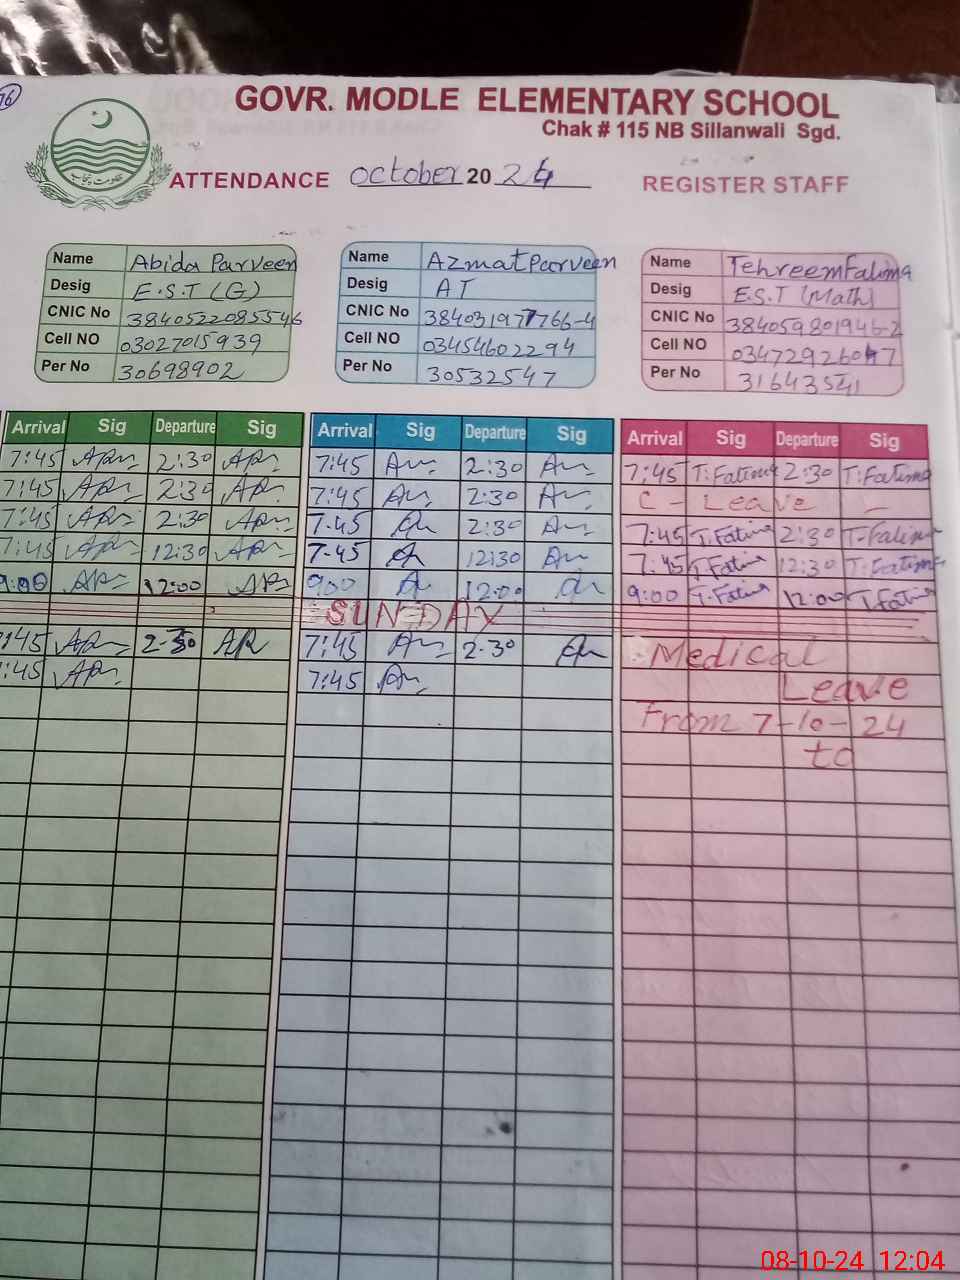 76
GOVR. MODLE ELEMENTARY SCHOOL
Chak # 115 NB Sillanwali Sgd.
حکومت پنجاب
ATTENDANCE October 20 24 REGISTER STAFF
Name Abida Parveen
Desig E.S.T (G)
CNIC No 3840522085546
Cell NO 03027015939
Per No 30698902
Name Azmat Parveen
Desig AT
CNIC No 384031977766-4
Cell NO 03454602294
Per No 30532547
Name Tehreem Fatima
Desig E.S.T (Math)
CNIC No 384059801946-2
Cell NO 03472926047
Per No 31643541
Arrival Sig Departure Sig Arrival Sig Departure Sig Arrival Sig Departure Sig
7:45 2:30 7:45 2:30 7:45 T.Fatima 2:30 T.Fatima
7:45 2:30 7:45 2:30 C - Leave -
7:45 2:30 7-45 2:30 7:45 T.Fatima 2:30 T.Fatima
7:45 12:30 7-45 12:30 7:45 T.Fatima 12:30 T.Fatima
9:00 12:00 9:00 12:00 9:00 T.Fatima 12:00 T.Fatima
SUNDAY
7:45 2-30 7:45 2-30 Medical
7:45 7:45 Leave
From 7-10-24
to
08-10-24 12:04